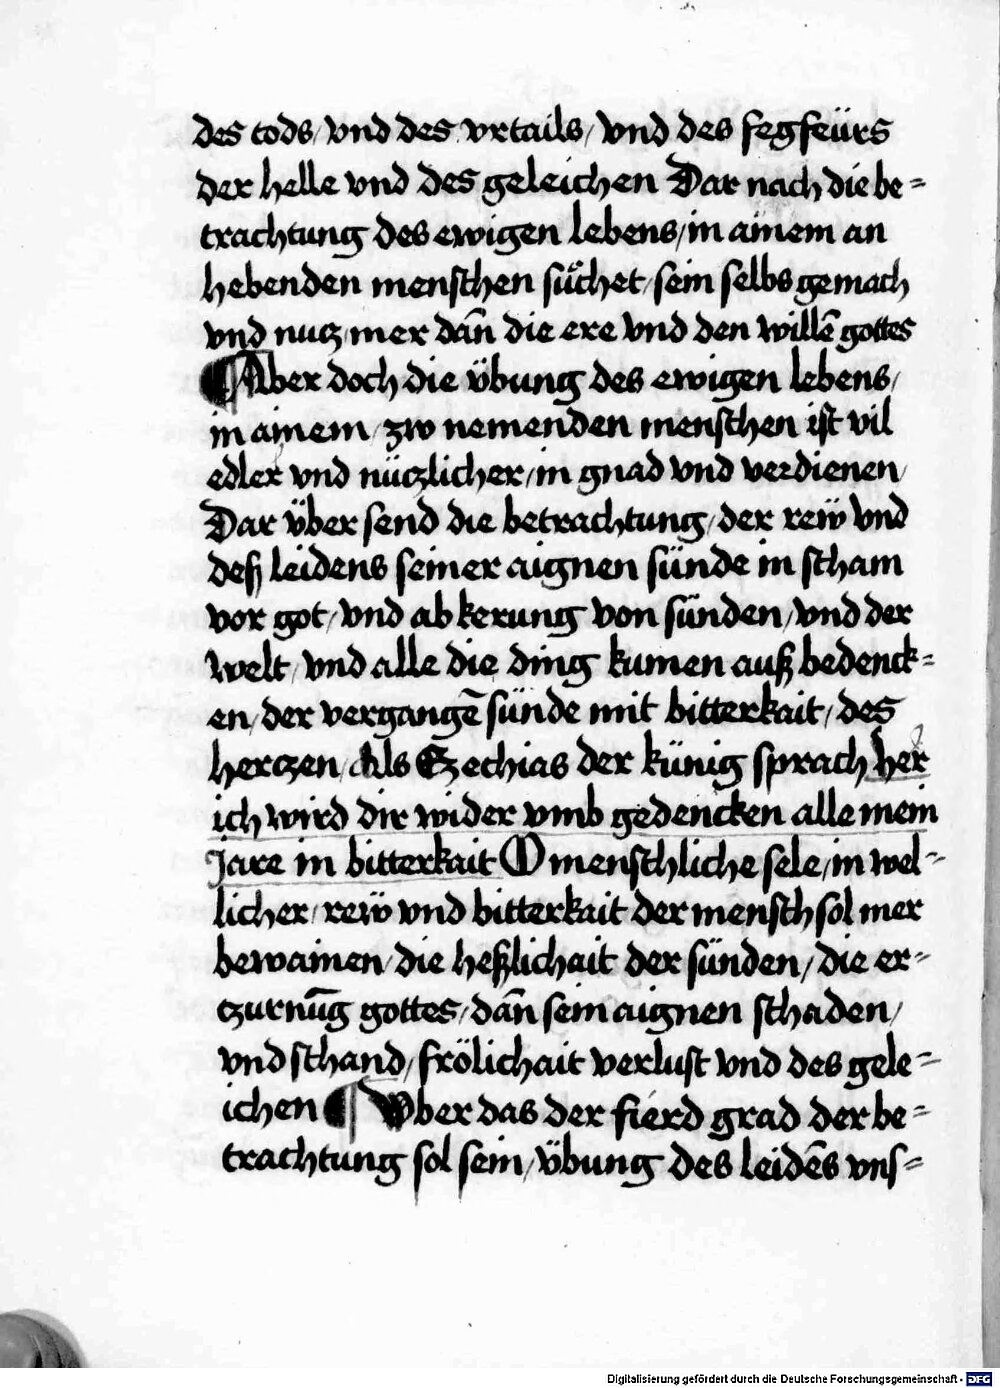 des tods / vnd des vrtails / vnd des fegfeürs
der helle vnd des geleichen Dar nach die be=
trachtung des ewigen lebens / in ainem an
hebenden menschen sůchet / sein selbs gemach
vnd nucz / mer dañ die ere vnd den willē gottes
¶ Aber doch die übung des ewigen lebens /
in ainem / zw nemenden menschen ist vil
edler vnd nüczlicher / in gnad vnd verdienen /
Dar über send die betrachtung / der reẅ vnd
deß leidens seiner aignen sünde in scham
vor got / vnd ab kerung von sünden / vnd der
welt / vnd alle die ding kumen auß bedenck=
en / der vergangē sünde mit bitterkait / des
herczen / Als Ezechias der künig sprach her
ich wird dir wider vmb gedencken alle mein
Jare in bitterkait O menschliche sele / in wel=
licher / reẅ vnd bitterkait der mensch sol mer
bewainen / die heßlichait der sünden / die er=
czurnūg gottes / dañ sein aignen schaden /
vnd schand / frölichait verlust vnd des gele=
ichen ¶ Aber das der fierd grad der be=
trachtung sol sein / übung des leidēs vns=
Digitalisierung gefördert durch die Deutsche Forschungsgemeinschaft - DFG